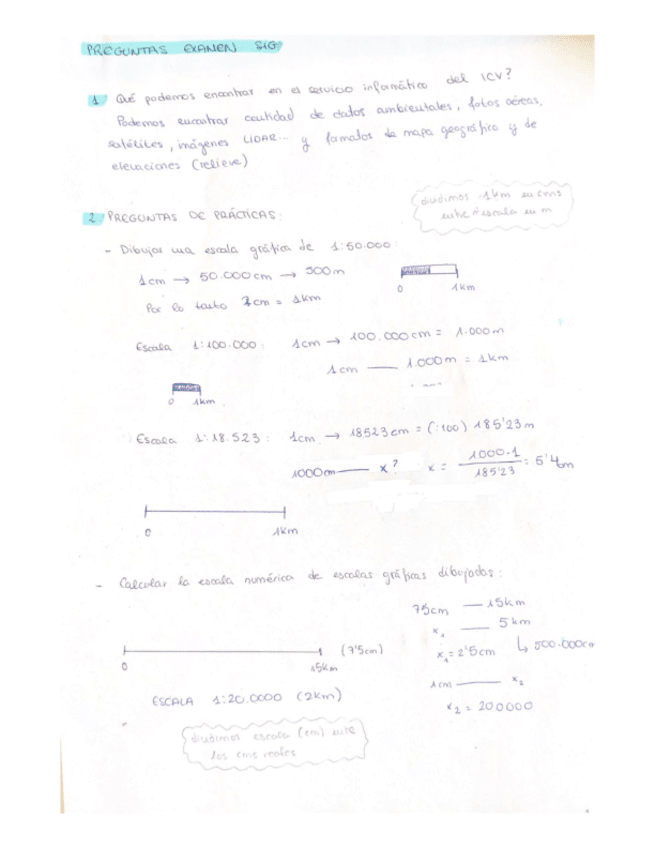 PREGUNTAS EXAMEN SIG
1 Qué podemos encontrar en el servicio informático del ICV?
Podemos encontrar cantidad de datos ambientales, fotos aéreas,
satélites, imágenes LIDAR... y formatos de mapa geográfico y de
elevaciones (relieve)
dividimos 1km en cms
entre nºescala en m
2 PREGUNTAS DE PRÁCTICAS:
- Dibujar una escala gráfica de 1:50.000:
1cm → 50.000cm → 500m
0 1km
Por lo tanto 2cm = 1km
Escala 1:100.000: 1cm → 100.000cm = 1.000m
1cm — 1.000m = 1km
0 1km
Escala 1:18.523: 1cm → 18523cm = (:100) 185'23m
1000m — x? x = 1000·1 / 185'23 = 5'4cm
0 1km
- Calcular la escala numérica de escalas gráficas dibujadas:
7'5cm — 15km
x₁ — 5km
0 15km (7'5cm)
x₁ = 2'5cm ↳ 500.000cm
1cm — x₂
ESCALA 1:20.0000 (2km)
x₂ = 200000
dividimos escala (cm) entre
los cms reales